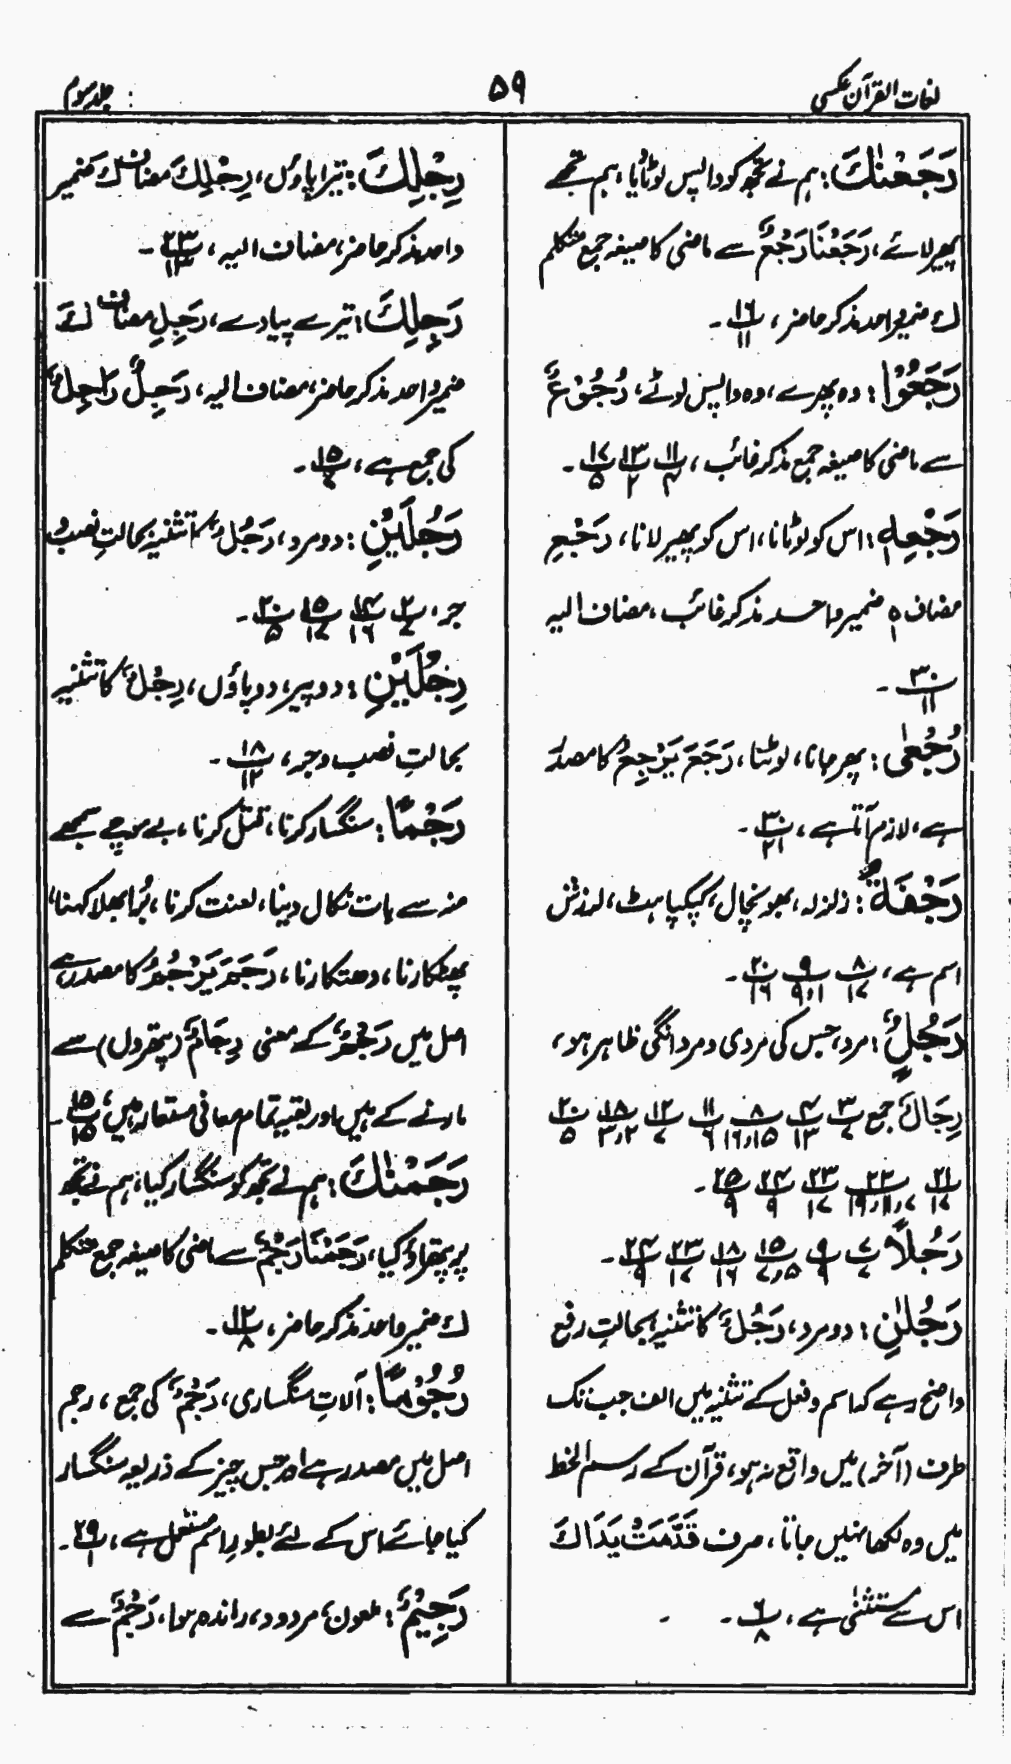 لغات القرآن عکسی
۵۹
جلد سوم
رَجَعْنٰكَ: ہم نے تجھ کو واپس لوٹایا، ہم تجھے
پھیر لائے، رَجَعْنَا رَجْعٌ سے ماضی کا صیغہ جمع متکلم
كَ ضمیر واحد مذکر حاضر، ۱۶/۱۱۔
رَجَعُوْا: وہ پھرے، وہ واپس لوٹے، رُجُوْعٌ
سے ماضی کا صیغہ جمع مذکر غائب، ۱۱/۴ ۱۳/۲ ۱۷/۵۔
رَجْعِهٖ: اس کو لوٹانا، اس کو پھیر لانا، رَجْعِ
مضاف ہٖ ضمیر واحد مذکر غائب، مضاف الیہ
۳۰/۱۱۔
رُجْعٰی: پھر جانا، لوٹنا، رَجَعَ یَرْجِعُ کا مصدر
ہے، لازم آتا ہے، ۳۰/۲۱۔
رَجْفَةٌ: زلزلہ، بھونچال، کپکپاہٹ، لرزش
اسم ہے، ۸/۱۷ ۹/۹،۱ ۲۰/۱۶۔
رَجُلٌ: مرد، جس کی مردی و مردانگی ظاہر ہو،
رِجَالٌ جمع ۳/۷ ۴/۱۳ ۸/۱۶،۱۵ ۱۱/۶ ۱۲/۷ ۱۸/۳،۲ ۲۰/۵
۲۱/۱۷ ۲۲/۱۹،۱۱،۷ ۲۳/۱۷ ۲۴/۹ ۲۵/۹۔
رَجُلًا ۷/۷ ۹/۹ ۱۵/۷،۵ ۱۸/۱۶ ۲۳/۱۷ ۲۴/۹۔
رَجُلٰنِ: دو مرد، رَجُلٌ کا تثنیہ بحالتِ رفع
واضح رہے کہ اسم و فعل کے تثنیہ میں الف جب تک
طرف (آخر) میں واقع نہ ہو، قرآن کے رسم الخط
میں وہ لکھا نہیں جاتا، صرف قَدَّمَتْ یَدَاكَ
اس سے مستثنٰی ہے، ۶/۸۔
رِجْلِكَ: تیرا پاؤں، رِجْلِكَ مضاف كَ ضمیر
واحد مذکر حاضر، مضاف الیہ، ۲۳/۱۳۔
رَجِلِكَ: تیرے پیادے، رَجِلِ مضاف كَ
ضمیر واحد مذکر حاضر، مضاف الیہ، رَجِلٌ رَاجِلٌ
کی جمع ہے، ۱۵/۷۔
رَجُلَیْنِ: دو مرد، رَجُلٌ کا تثنیہ بحالتِ نصب و
جر، ۲/۷ ۱۴/۱۶ ۱۵/۱۷ ۲۰/۵۔
رِجْلَیْنِ: دو پیر، دو پاؤں، رِجْلٌ کا تثنیہ
بحالتِ نصب و جر، ۱۸/۱۲۔
رَجْمًا: سنگسار کرنا، قتل کرنا، بے سوچے سمجھے
منہ سے بات نکال دینا، لعنت کرنا، بُرا بھلا کہنا،
پھٹکارنا، دھتکارنا، رَجَمَ یَرْجُمُ کا مصدر ہے
اصل میں رَجْمٌ کے معنی رِجَامٌ (پتھروں) سے
مارنے کے ہیں اور بقیہ تمام معانی مستعار ہیں، ۱۵/۱۵۔
رَجَمْنٰكَ: ہم نے تجھ کو سنگسار کیا، ہم نے تجھ
پر پتھراؤ کیا، رَجَمْنَا رَجْمٌ سے ماضی کا صیغہ جمع متکلم
كَ ضمیر واحد مذکر حاضر، ۱۲/۸۔
رُجُوْمًا: آلاتِ سنگساری، رَجْمٌ کی جمع، رجم
اصل میں مصدر ہے اور جس چیز کے ذریعہ سنگسار
کیا جائے اس کے لئے بطور اسم مستعمل ہے، ۲۹/۱۔
رَجِیْمٌ: ملعون، مردود، راندہ ہوا، رَجْمٌ سے